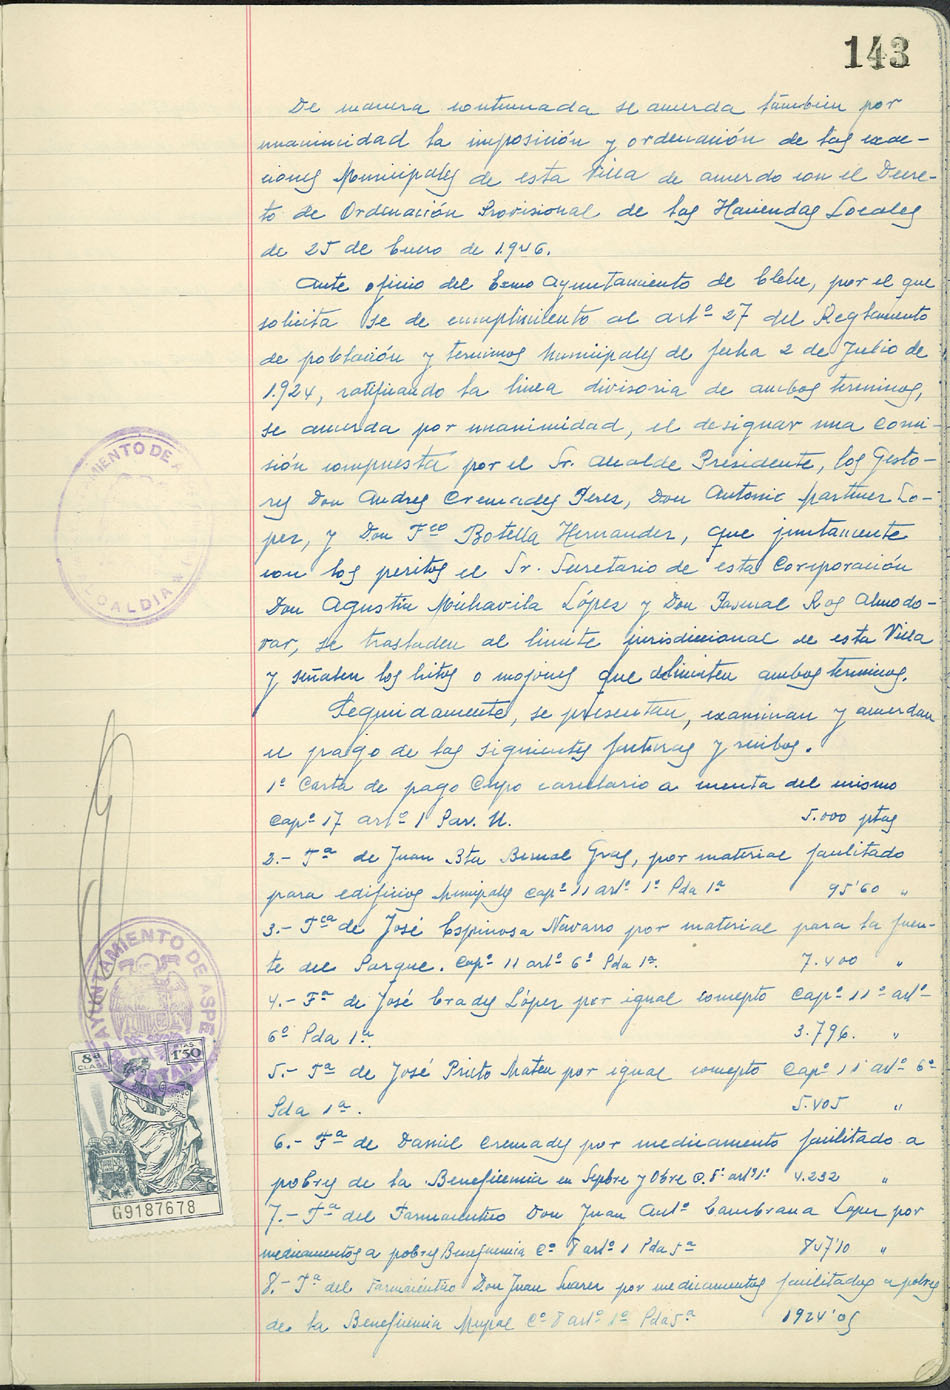 143
De manera continuada se acuerda tambien por
unanimidad la imposición y ordenación de las exac-
ciones Municipales de esta Villa de acuerdo con el Decre-
to de Ordenación Provisional de las Haciendas Locales
de 25 de Enero de 1.946.
Ante oficio del Excmo Ayuntamiento de Elche, por el que
solicita se de cumplimiento al artº 27 del Reglamento
de población y terminos municipales de fecha 2 de Julio de
1.924, ratificando la linea divisoria de ambos terminos,
se acuerda por unanimidad, el designar una Comi-
sión compuesta por el Sr. Alcalde Presidente, los Gesto-
res Don Andres Cremades Perez, Don Antonio Martinez Lo-
pez, y Don Fco Botella Hernandez, que juntamente
con los peritos el Sr. Secretario de esta Corporación
Don Agustin Michavila López y Don Pascual Ros Almodo-
var, se trasladen al limite jurisdiccional de esta Villa
y señalen los hitos o mojones que delimiten ambos terminos.
Seguidamente, se presentan, examinan y acuerdan
el pago de las siguientes facturas y recibos.
1º Carta de pago Cupo carcelario a cuenta del mismo
Capº 17 artº 1 Par. U. 5.000 ptas
2.- Fª de Juan Bta Bernal Gras, por material facilitado
para edificios Municipales Capº 11 artº 1º Pda 1ª 95'60 "
3.- Fcª de José Espinosa Navarro por material para la fuen-
te del Parque. Capº 11 artº 6º Pda 1ª. 7.400 "
4.- Fª de José Prades López por igual concepto Capº 11º artº
6º Pda 1ª. 3.796. "
5.- Fª de José Prieto Mateu por igual concepto Capº 11 artº 6º
Pda 1ª. 5.405 "
6.- Fª de Daniel Cremades por medicamento facilitado a
pobres de la Beneficencia en Sepbre y Obre C. 8º artº 1º 4.232 "
7.- Fª del Farmaceutico Don Juan Antº Cambrana Lopez por
medicamentos a pobres Beneficencia Cº 8 artº 1 Pda 5ª 847'10 "
8.- Fª del Farmaceutico Don Juan Suarez por medicamentos facilitados a pobres
de la Beneficencia Mupal Cº 8 artº 1º Pda 5ª 1924'05
AYUNTAMIENTO DE ASPE
ALCALDIA
AYUNTAMIENTO DE ASPE
8ª CLASE
PTAS 1'50
G9187678